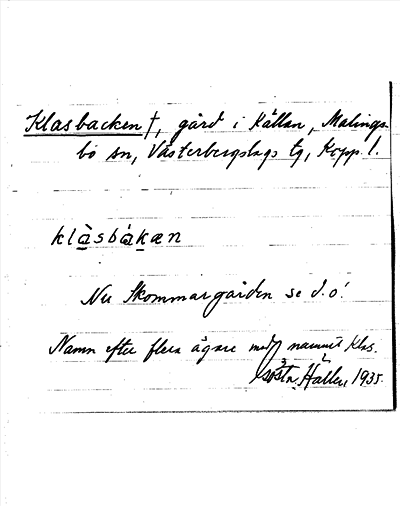 Klasbacken †, gård i Källan, Malings-
bo sn, Västerbergslags tg, Kopp. l.
klàsbàkæn
Nu Skommargården se d. o!
Namn efter flera ägare med namnet Klas.
Gösta Hallen, 1935.